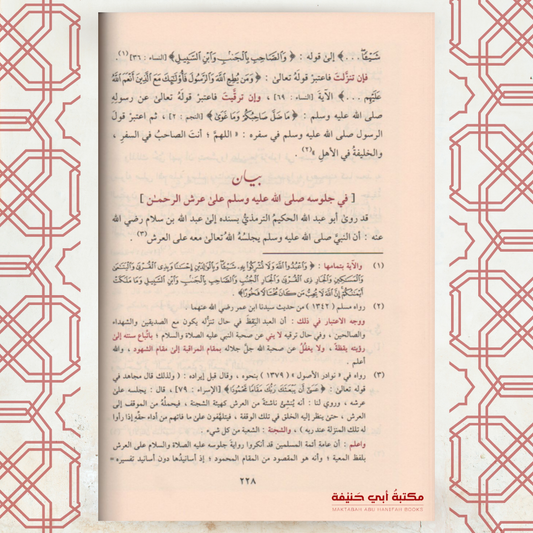 شَيْئًا ...﴾ إلىٰ قوله : ﴿ وَالصَّاحِبِ بِالْجَنْبِ وَابْنِ السَّبِيلِ﴾ [النساء : ٣٦](١) .
فإن تنزَّلتَ فاعتبرْ قولَهُ تعالىٰ : ﴿ وَمَن يُطِعِ اللَّهَ وَالرَّسُولَ فَأُوْلَٰئِكَ مَعَ الَّذِينَ أَنْعَمَ اللَّهُ
عَلَيْهِم ...﴾ الآيةَ [النساء : ٦٩] ، وإن ترقَّيتَ فاعتبرْ قولَهُ تعالىٰ عن رسولِهِ
صلى الله عليه وسلم : ﴿ مَا ضَلَّ صَاحِبُكُمْ وَمَا غَوَىٰ﴾ [النجم : ٢] ، ثم اعتبرْ قولَ
الرسول صلى الله عليه وسلم في سفره : « اللهمَّ ؛ أنتَ الصاحبُ في السفرِ ،
والخليفةُ في الأهلِ »(٢) .
بيان
[ في جلوسه صلى الله عليه وسلم علىٰ عرش الرحمٰن ]
قد روىٰ أبو عبد الله الحكيمُ الترمذيُّ بسنده إلىٰ عبد الله بن سلام رضي الله
عنه : أن النبيَّ صلى الله عليه وسلم يجلسُهُ اللهُ تعالىٰ معه على العرش(٣) .
(١) والآية بتمامها : ﴿ وَاعْبُدُوا اللَّهَ وَلَا تُشْرِكُوا بِهِ شَيْئًا وَبِالْوَالِدَيْنِ إِحْسَانًا وَبِذِي الْقُرْبَىٰ وَالْيَتَامَىٰ
وَالْمَسَاكِينِ وَالْجَارِ ذِي الْقُرْبَىٰ وَالْجَارِ الْجُنُبِ وَالصَّاحِبِ بِالْجَنْبِ وَابْنِ السَّبِيلِ وَمَا مَلَكَتْ
أَيْمَانُكُمْ إِنَّ اللَّهَ لَا يُحِبُّ مَن كَانَ مُخْتَالًا فَخُورًا﴾ .
(٢) رواه مسلم ( ١٣٤٢ ) من حديث سيدنا ابن عمر رضي الله عنهما
ووجه الاعتبار في ذلك : أن العبد اليقظ في حال تنزُّله يكون مع الصديقين والشهداء
والصالحين ، وفي حال ترقيه لا يني عن صحبة النبي عليه الصلاة والسلام ؛ باتِّباع سنته إلىٰ
رؤيته يقظةً ، ولا يغفُلُ عن صحبة الله جلَّ جلاله بمقام المراقبة إلىٰ مقام الشهود ، والله
أعلم .
(٣) رواه في « نوادر الأصول » ( ١٣٧٩ ) بنحوه ، وقال قبل إيراده : ( ولذلك قال مجاهد في
قوله تعالىٰ : ﴿ عَسَىٰ أَن يَبْعَثَكَ رَبُّكَ مَقَامًا مَّحْمُودًا﴾ [الإسراء : ٧٩] ، قال : يجلسه علىٰ
عرشه ، وروي لنا : أنه يُنشئُ ناشئةً من العرش كهيئة الشجنة ، فيحملُهُ من الموقف إلى
العرش ، حتىٰ ينظر إليه الخلق في تلك الوقفة ، فيتلهَّفونَ علىٰ ما فاتهم من أداء حقِّهِ إذا رأوا
له تلك المنزلة عند ربه ) ، والشجنة : الشعبة من كل شيء .
واعلم : أن عامة أئمة المسلمين قد أنكروا رواية جلوسه عليه الصلاة والسلام على العرش
بلفظ المعية ؛ وأنه هو المقصود من المقام المحمود ؛ إذ أسانيدُها دون أسانيد تفسيره=
٢٢٨
مكتبة أبي حنيفة
MAKTABAH ABU HANEFAH BOOKS